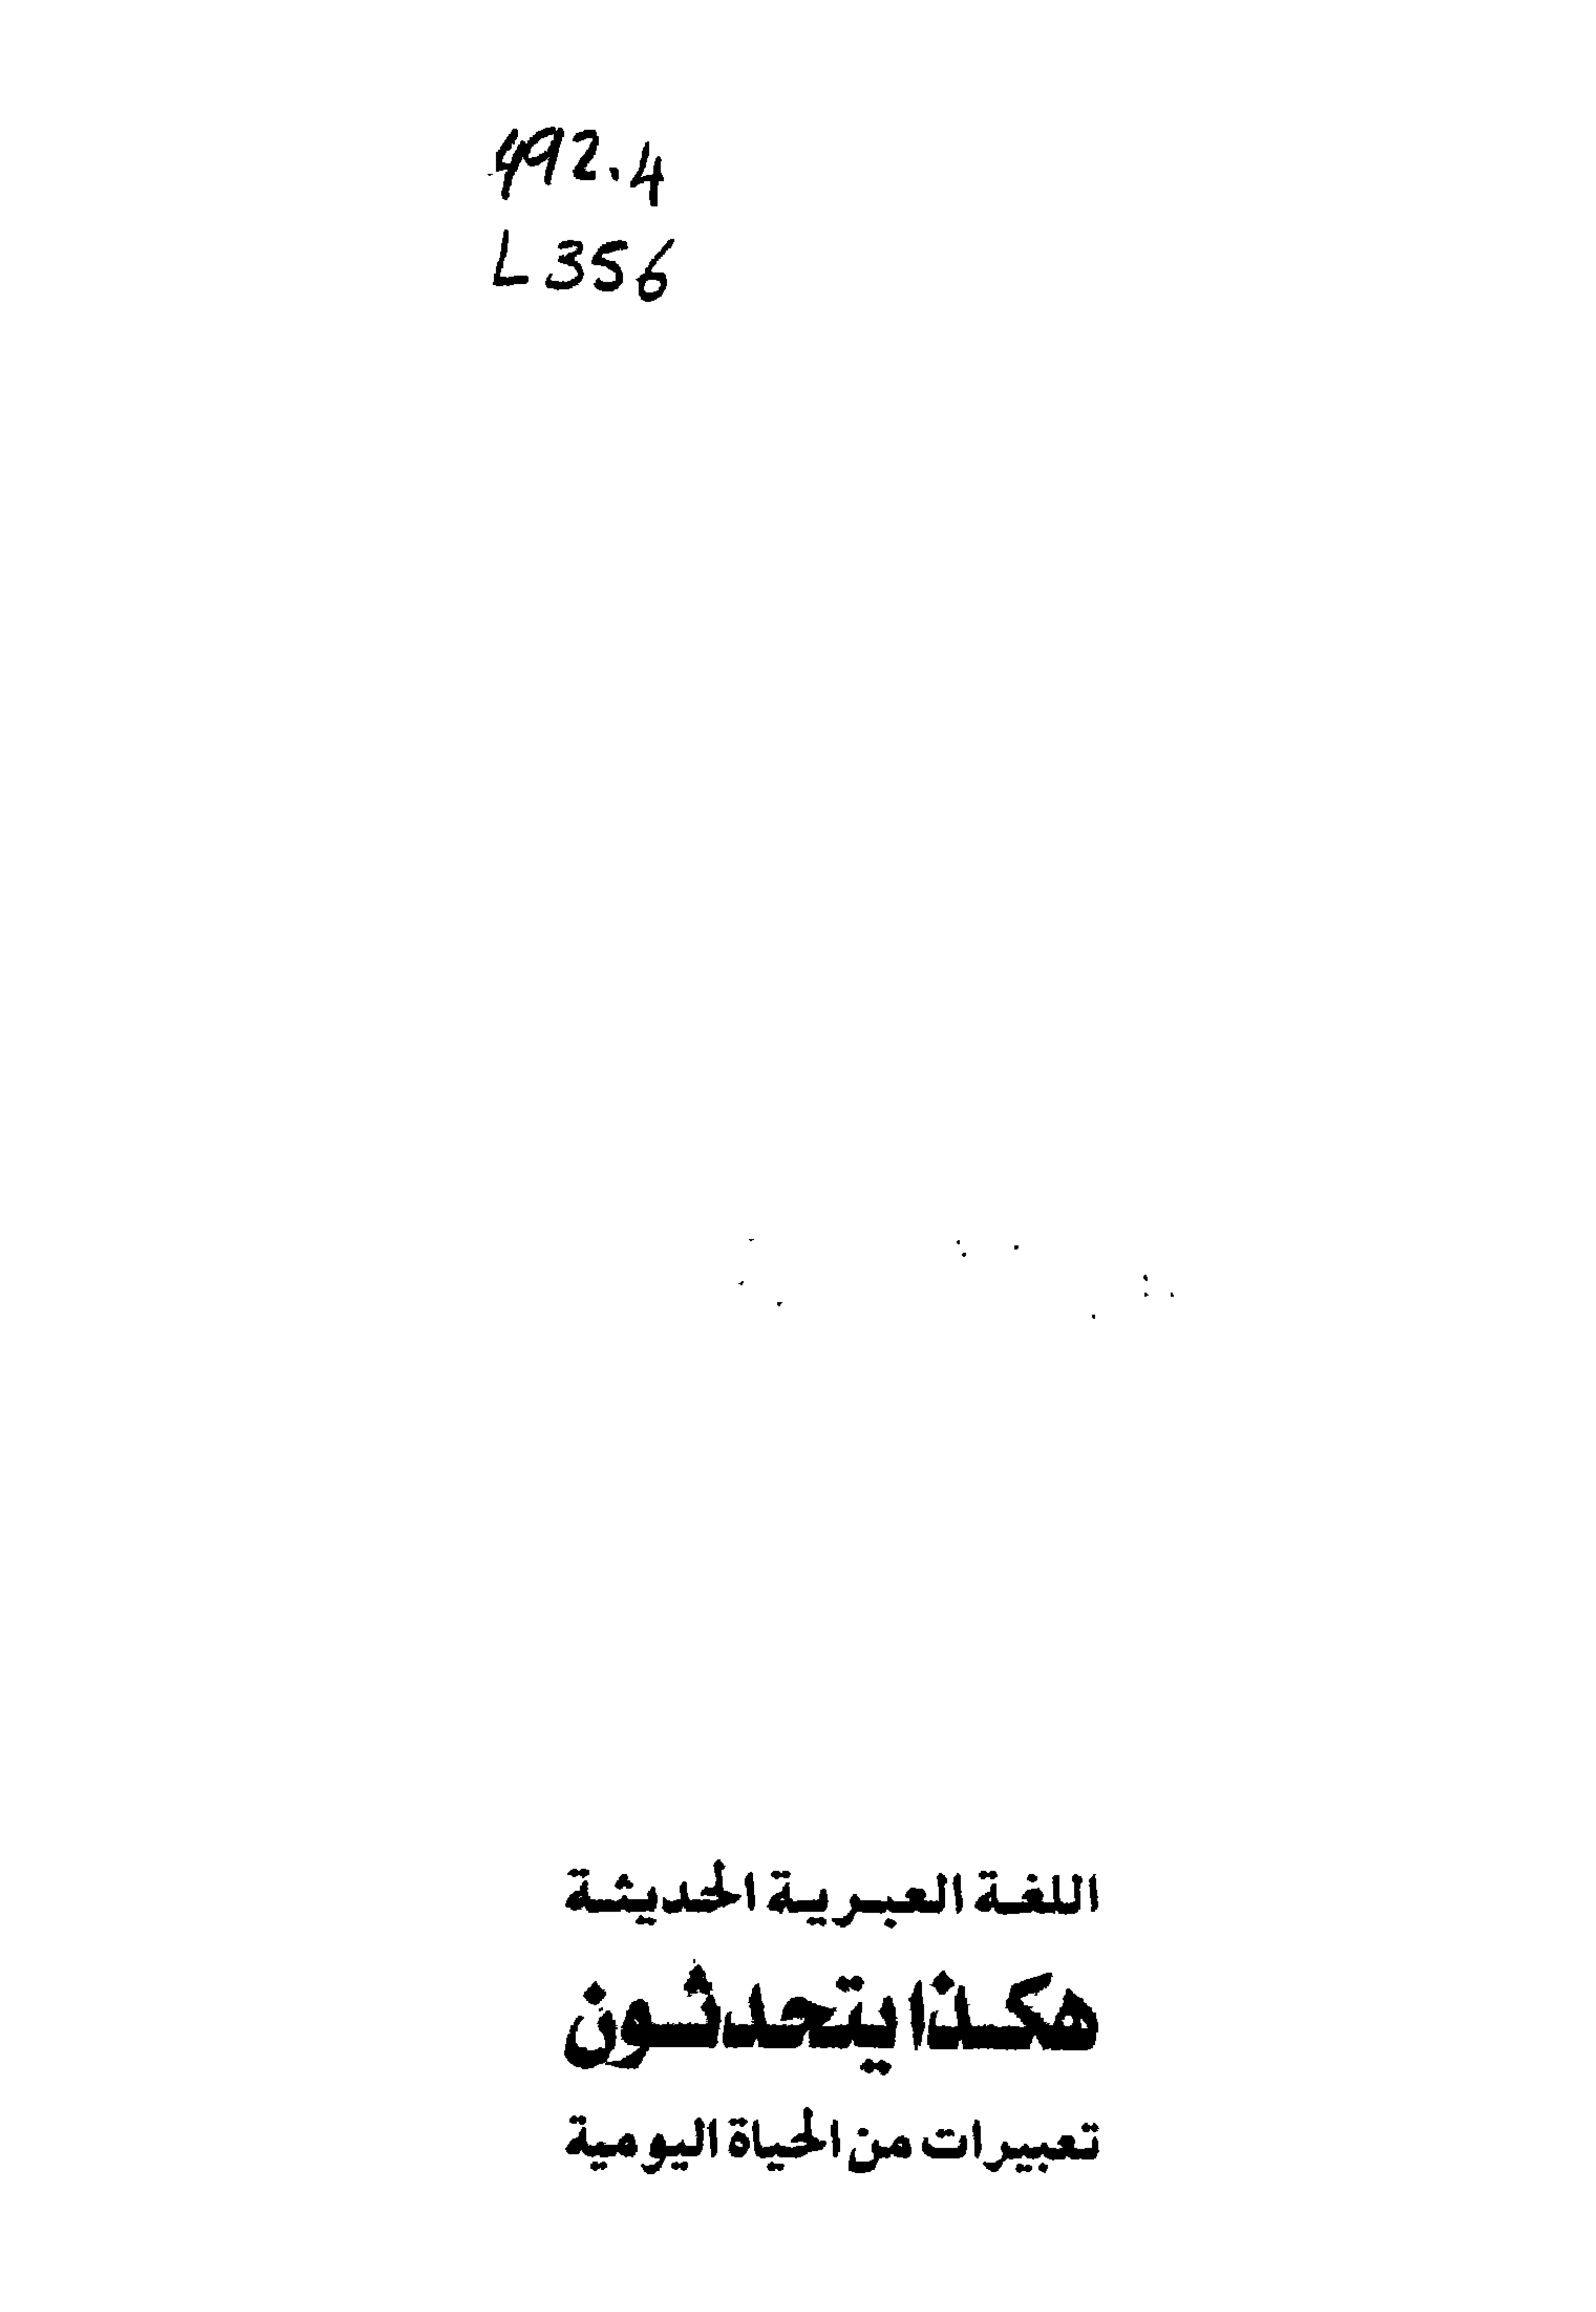 492.4
L356
اللغة العبرية الحديثة
هكذا يتحدثون
تعبيرات من الحياة اليومية